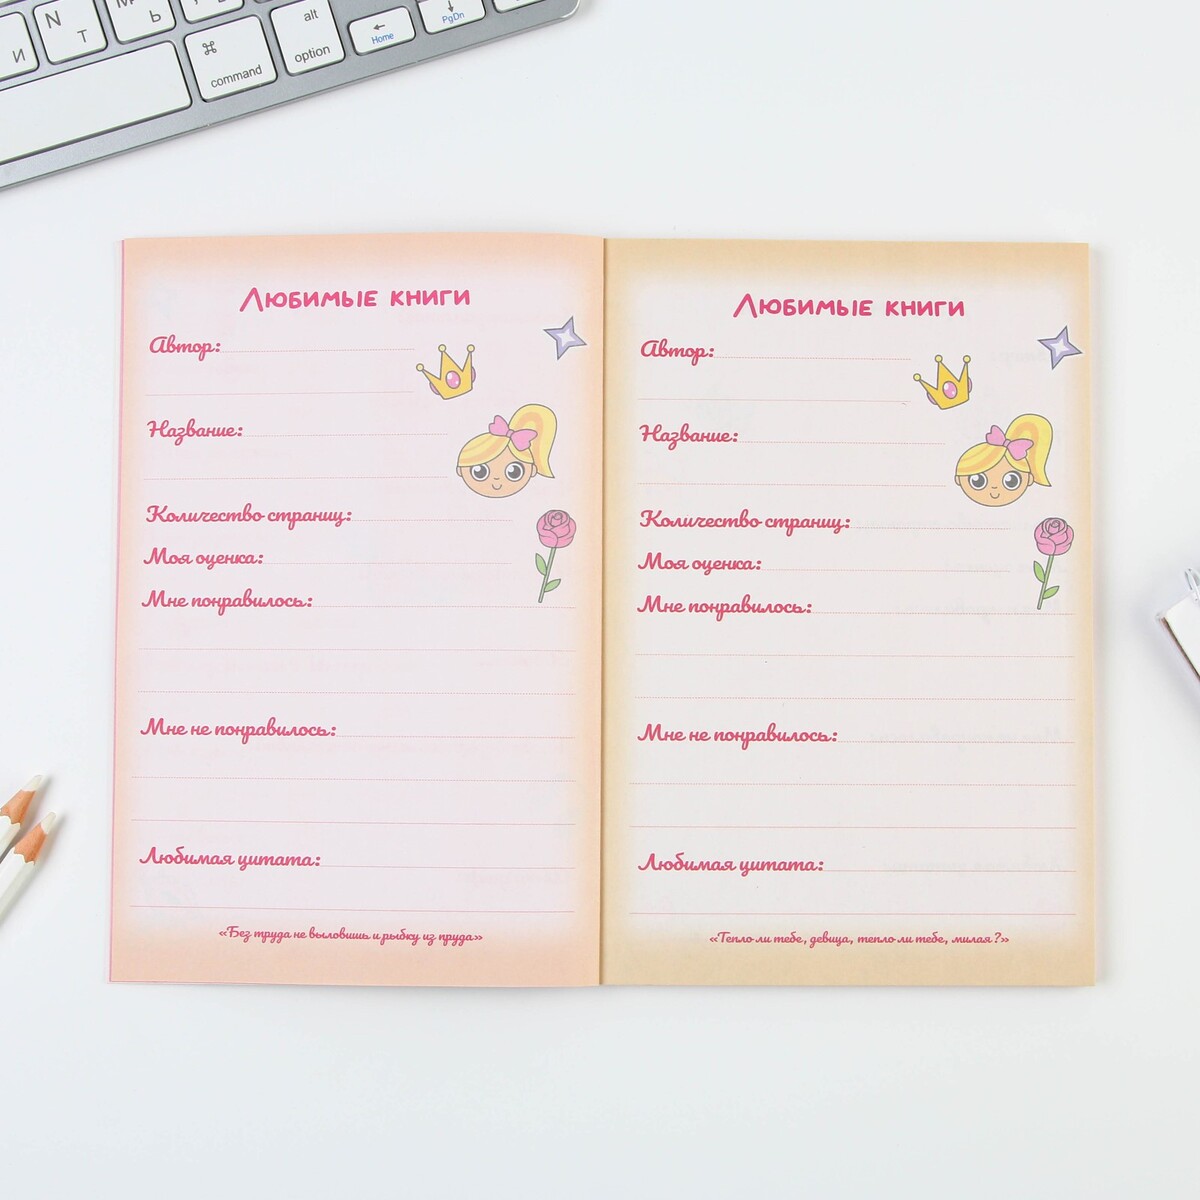 И
N
Т
Ь
⌘
command
alt
option
←
Home
↓
PgDn
Любимые книги
Автор:
Название:
Количество страниц:
Моя оценка:
Мне понравилось:
Мне не понравилось:
Любимая цитата:
«Без труда не выловишь и рыбку из пруда»
Любимые книги
Автор:
Название:
Количество страниц:
Моя оценка:
Мне понравилось:
Мне не понравилось:
Любимая цитата:
«Тепло ли тебе, девица, тепло ли тебе, милая?»